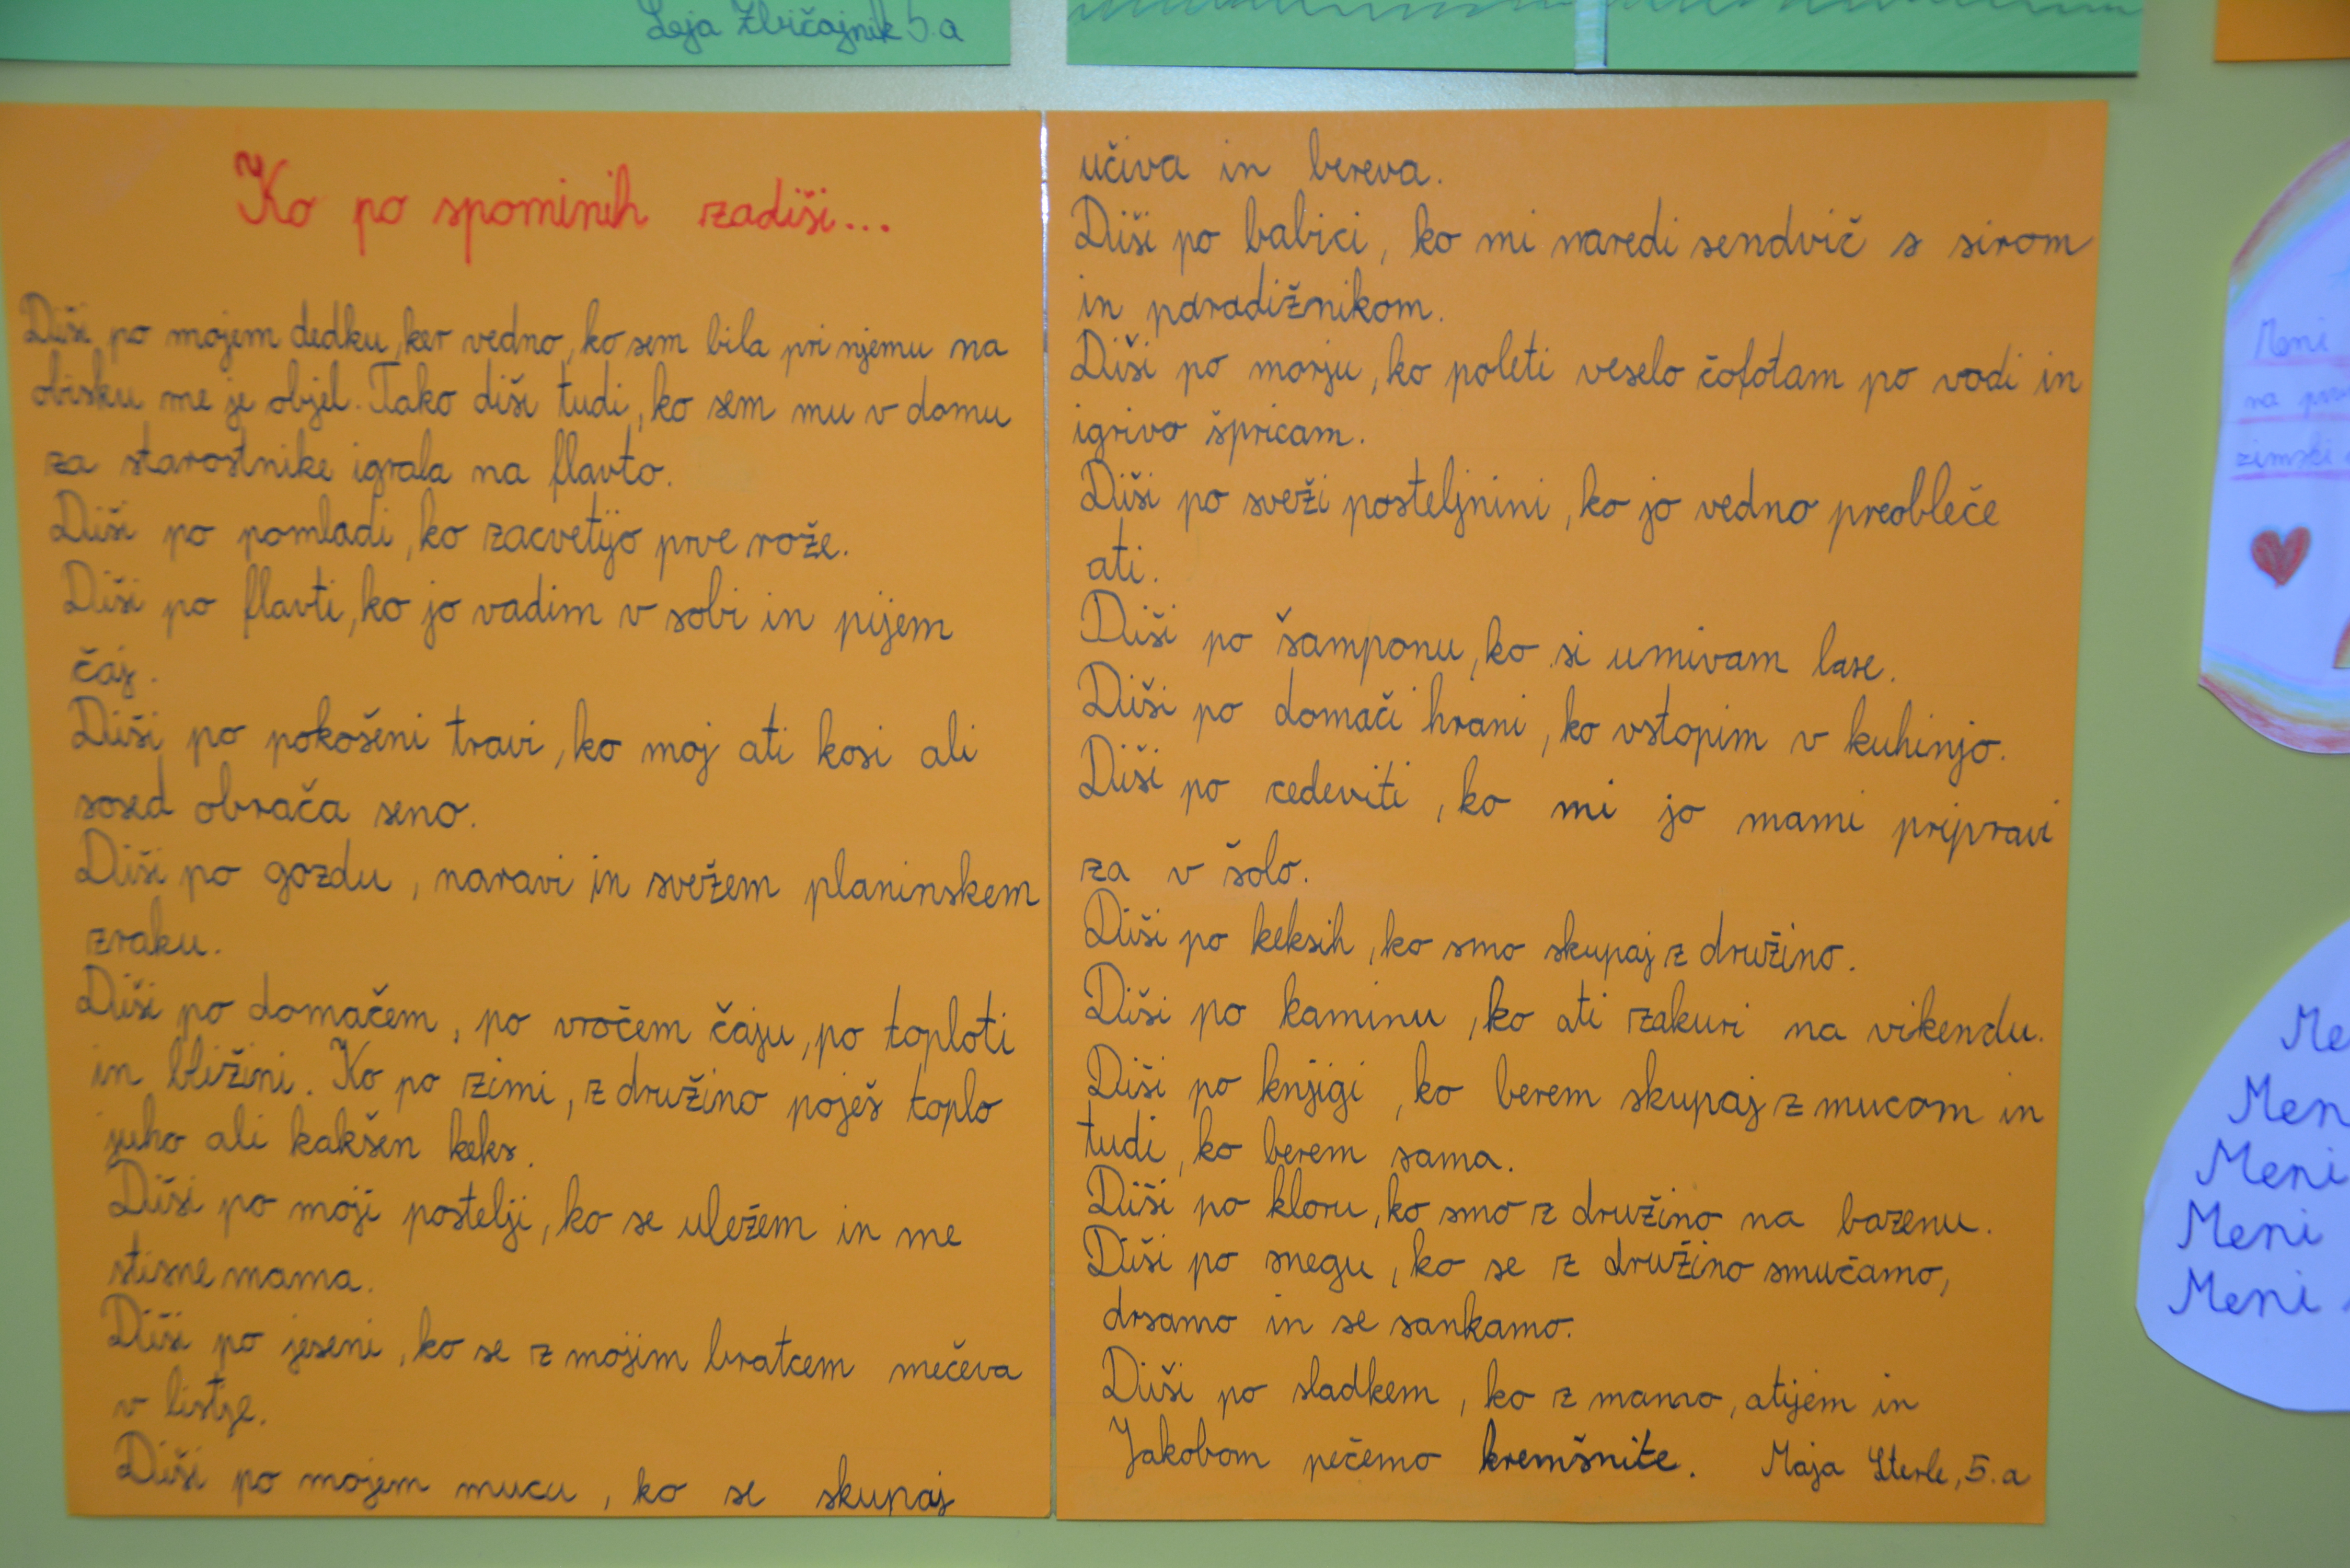 Leja Zbičajnik 5.a
Ko po spominih zadiši...
Diši po mojem dedku, ker vedno, ko sem bila pri njemu na
obisku me je objel. Tako diši tudi, ko sem mu v domu
za starostnike igrala na flavto.
Diši po pomladi, ko zacvetijo prve rože.
Diši po flavti, ko jo vadim v sobi in pijem
čaj.
Diši po pokošeni travi, ko moj ati kosi ali
sosed obrača seno.
Diši po gozdu, naravi in svežem planinskem
zraku.
Diši po domačem, po vročem čaju, po toploti
in bližini. Ko po zimi, z družino poješ toplo
juho ali kakšen keks.
Diši po moji postelji, ko se uležem in me
stisne mama.
Diši po jeseni, ko se z mojim bratcem mečeva
v listje.
Diši po mojem mucu, ko se skupaj
učiva in bereva.
Diši po babici, ko mi naredi sendvič s sirom
in paradižnikom.
Diši po morju, ko poleti veselo čofotam po vodi in
igrivo špricam.
Diši po sveži posteljnini, ko jo vedno preobleče
ati.
Diši po šamponu, ko si umivam lase.
Diši po domači hrani, ko vstopim v kuhinjo.
Diši po cedeviti, ko mi jo mami pripravi
za v šolo.
Diši po keksih, ko smo skupaj z družino.
Diši po kaminu, ko ati zakuri na vikendu.
Diši po knjigi, ko berem skupaj z mucom in
tudi, ko berem sama.
Diši po kloru, ko smo z družino na bazenu.
Diši po snegu, ko se z družino smučamo,
drsamo in se sankamo.
Diši po sladkem, ko z mamo, atijem in
Jakobom pečemo kremšnite. Maja Sterle, 5.a
Meni
na
zimski
Meni
Meni
Meni